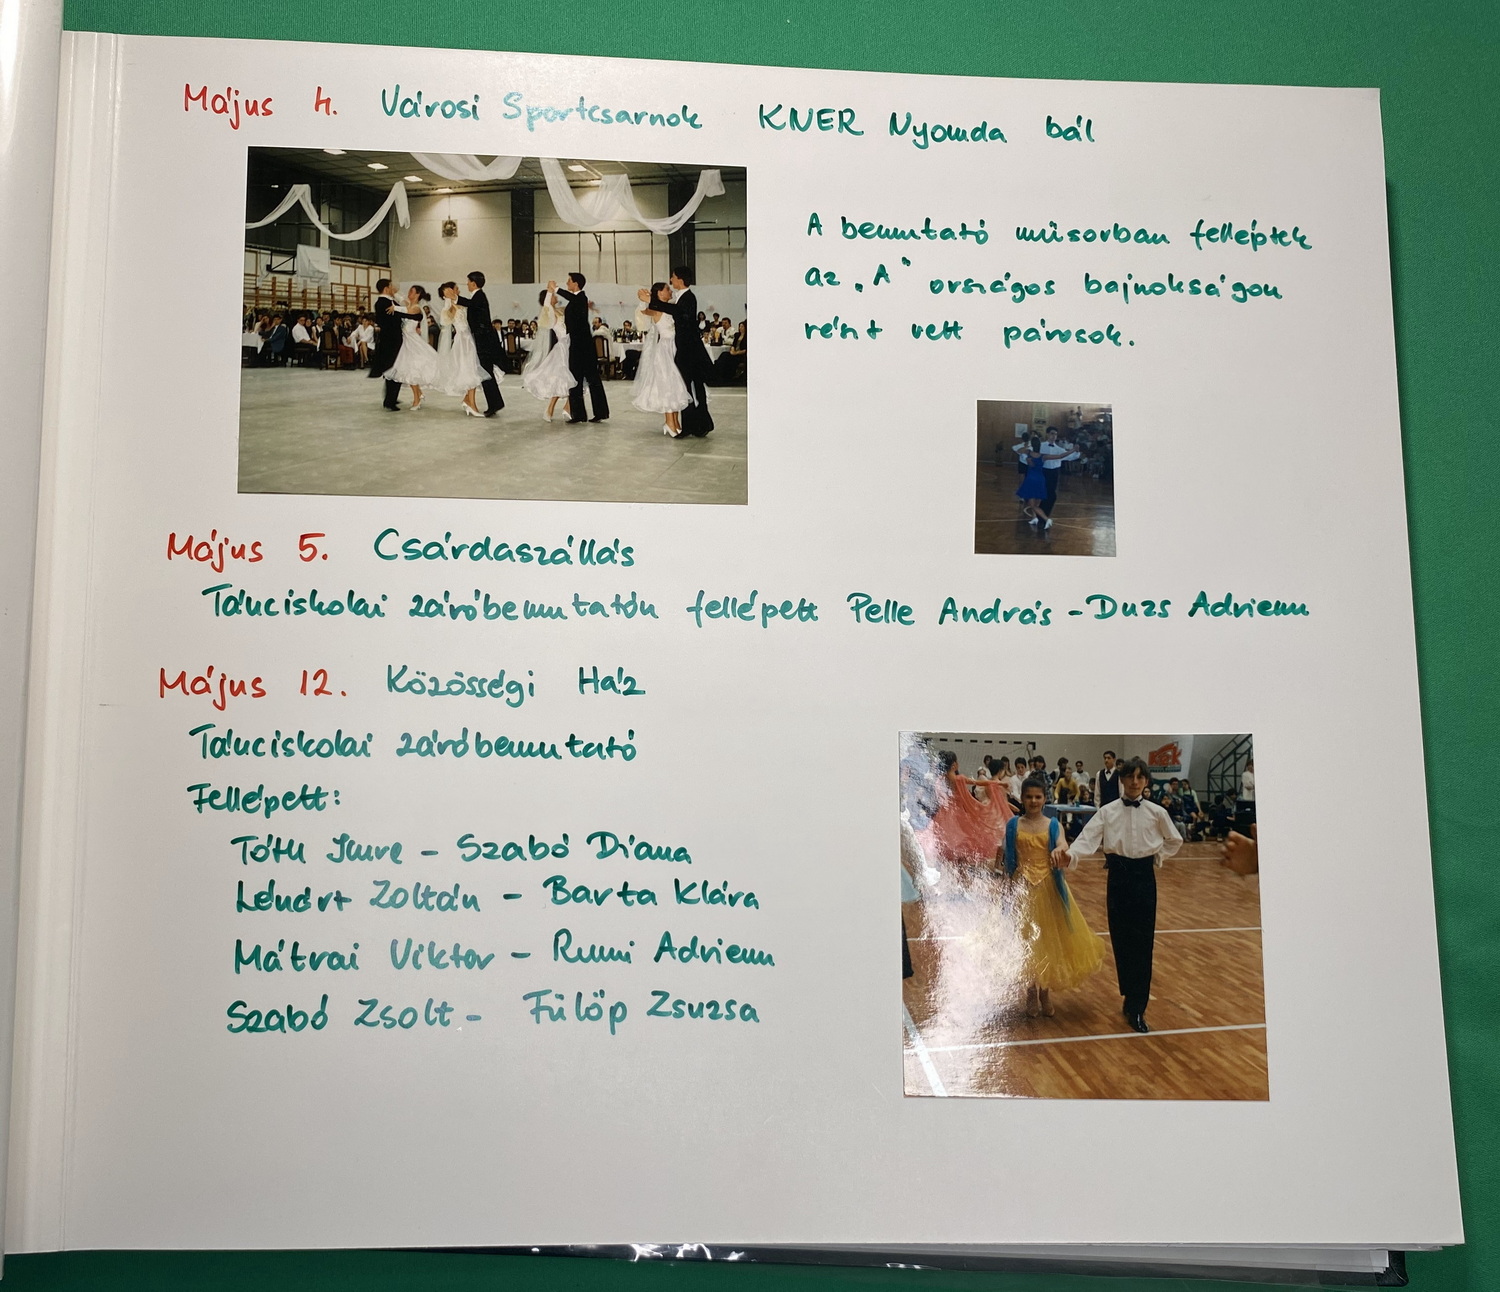 Május 4. Városi Sportcsarnok KNER Nyomda bál
A bemutató műsorban felléptek
az „A" országos bajnokságon
részt vett párosok.
Május 5. Csárdaszállás
Tánciskolai záróbemutatón fellépett Pelle András - Duzs Adrienn
Május 12. Közösségi Ház
Tánciskolai záróbemutató
Fellépett:
Tóth Imre - Szabó Diana
Lénárt Zoltán - Barta Klára
Mátrai Viktor - Rumi Adrienn
Szabó Zsolt - Fülöp Zsuzsa